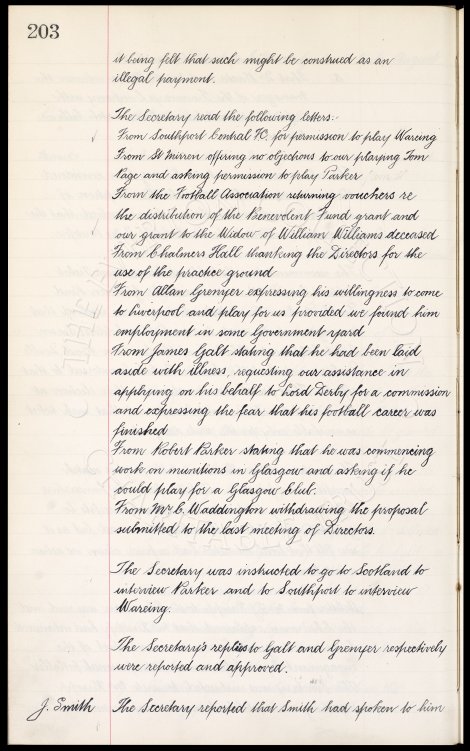 203
it being felt that such might be construed as an
illegal payment.
The Secretary read the following letters:-
From Southport Central F.C. for permission to play Wareing
From St Mirren offering no objections to our playing Tom
Page and asking permission to play Parker
From the Football Association returning vouchers re
the distribution of the Benevolent Fund grant and
our grant to the Widow of William Williams deceased
From Chalmers Hall thanking the Directors for the
use of the practice ground
From Allan Grenyer expressing his willingness to come
to Liverpool and play for us provided we found him
employment in some Government yard
From James Galt stating that he had been laid
aside with illness, requesting our assistance in
applying on his behalf to Lord Derby for a commission
and expressing the fear that his football career was
finished
From Robert Parker stating that he was commencing
work on munitions in Glasgow and asking if he
could play for a Glasgow club.
From Mr C. Waddington withdrawing the proposal
submitted to the last meeting of Directors.
The Secretary was instructed to go to Scotland to
interview Parker and to Southport to interview
Wareing.
The Secretary's replies to Galt and Grenyer respectively
were reported and approved.
J. Smith The Secretary reported that Smith had spoken to him